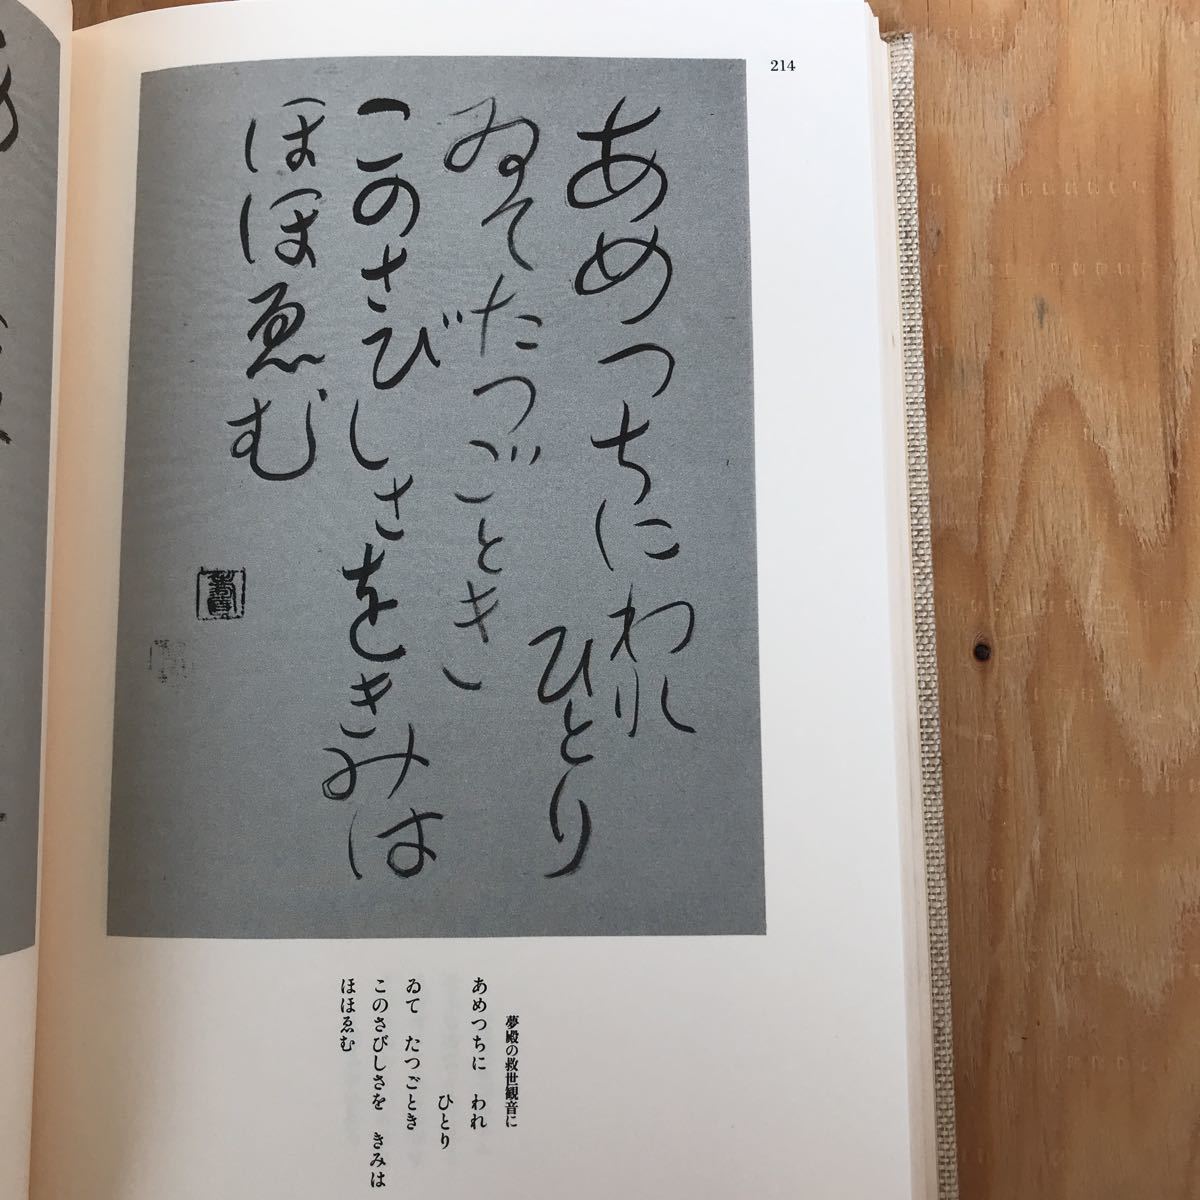 214
あめつちに われ
ひとり
ゐて たつごとき
このさびしさを きみは
ほほゑむ
夢殿の救世観音に
あめつちに われ
ひとり
ゐて たつごとき
このさびしさを きみは
ほほゑむ